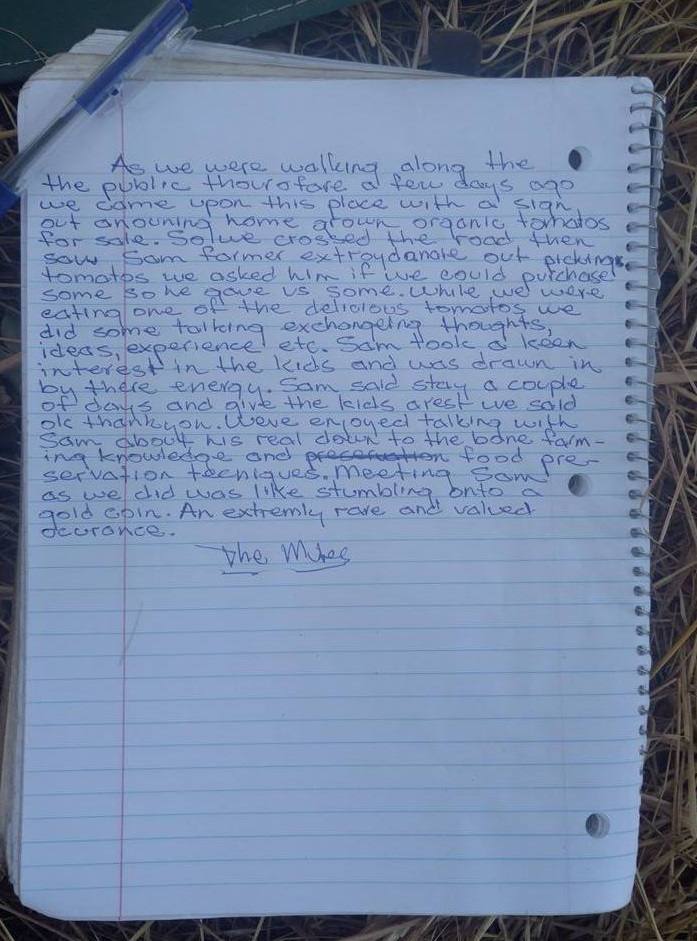 As we were walking along the
the public thourofare a few days ago
we came upon this place with a sign
out anouning home grown organic tomatos
for sale. So we crossed the road then
saw Sam farmer extroydanare out picking
tomatos we asked him if we could purchase
some so he gave us some. While we were
eating one of the delicious tomatos we
did some talking exchangeing thoughts,
ideas, experience etc. Sam took a keen
interest in the kids and was drawn in
by there energy. Sam said stay a couple
of days and give the kids arest we said
ok thankyou. Weve enjoyed talking with
Sam about his real down to the bone farm-
ing knowledge and preservation food pre-
servation tecniques. Meeting Sam
as we did was like stumbling onto a
gold coin. An extremly rare and valued
ocurance.
The